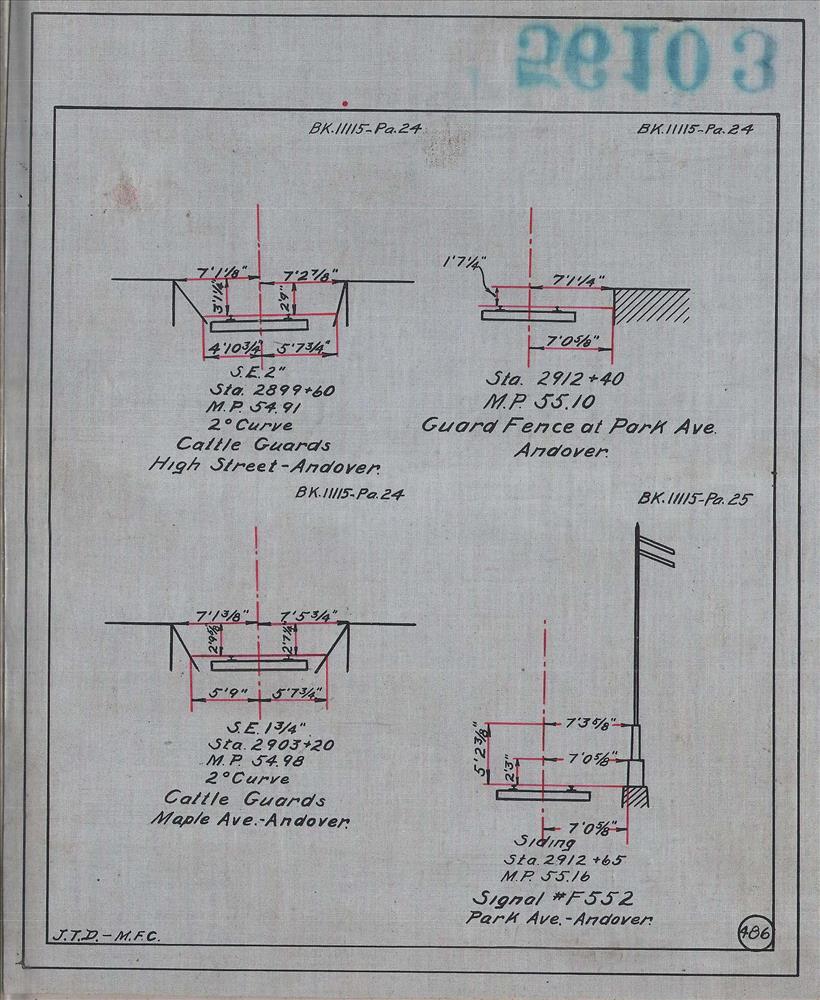 56103
BK.11115-Pa.24
7'1⅛"
7'2⅞"
3'1¼"
2'9"
4'10¾"
5'7¾"
S.E.2"
Sta. 2899+60
M.P. 54.91
2° Curve
Cattle Guards
High Street-Andover.
BK.11115-Pa.24
1'7¼"
7'1¼"
7'0⅝"
Sta. 2912+40
M.P. 55.10
Guard Fence at Park Ave.
Andover.
BK.11115-Pa.24
7'1⅜"
7'5¾"
2'9⅝"
2'7¼"
5'9"
5'7¾"
S.E. 1¾"
Sta. 2903+20
M.P. 54.98
2° Curve
Cattle Guards
Maple Ave.-Andover.
BK.11115-Pa.25
7'3⅝"
5'2⅜"
7'0⅝"
2'3"
7'0⅝"
Siding
Sta. 2912+65
M.P. 55.16
Signal #F552
Park Ave.-Andover.
J.T.D.-M.F.C.
486